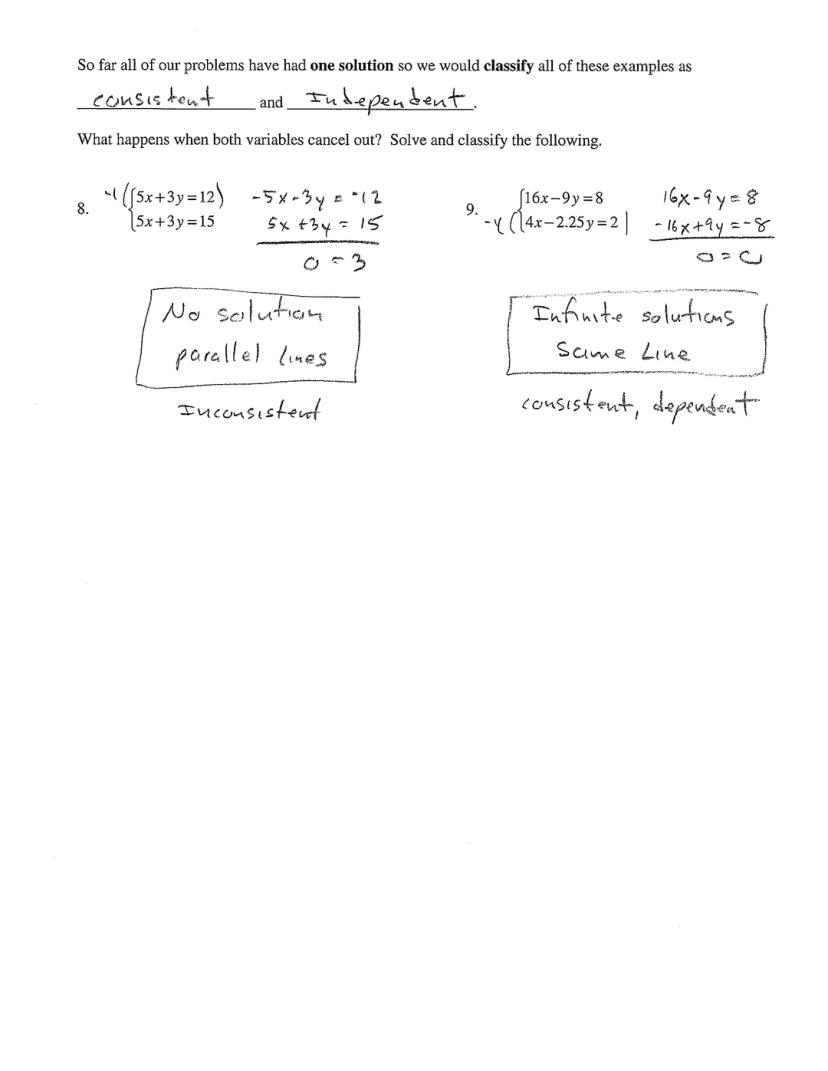 So far all of our problems have had one solution so we would classify all of these examples as
consistent and Independent.
What happens when both variables cancel out? Solve and classify the following.
8. -1 ( { 5x+3y=12 ) -5x-3y = -12
5x+3y=15 5x+3y = 15
0 = 3
No solution
parallel lines
Inconsistent
9. { 16x-9y=8 16x-9y=8
-4 ( 4x-2.25y=2 ) -16x+9y=-8
0=0
Infinite solutions
Same Line
consistent, dependent